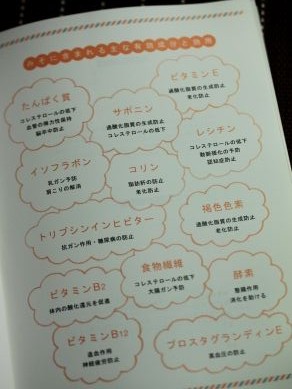 みそに含まれる主な有効成分と効用
ビタミンE
過酸化脂質の生成防止
老化防止
たんぱく質
コレステロールの低下
血管の弾力性保持
脳卒中防止
サポニン
過酸化脂質の生成防止
コレステロールの低下
レシチン
コレステロールの低下
動脈硬化の予防
認知症防止
イソフラボン
乳ガン予防
肩こりの解消
コリン
脂肪肝の防止
老化防止
褐色色素
過酸化脂質の生成防止
老化防止
トリプシンインヒビター
抗ガン作用・糖尿病の防止
食物繊維
コレステロールの低下
大腸ガン予防
酵素
整腸作用
消化を助ける
ビタミンB2
体内の酸化還元を促進
ビタミンB12
造血作用
神経疲労防止
プロスタグランディンE
高血圧の防止